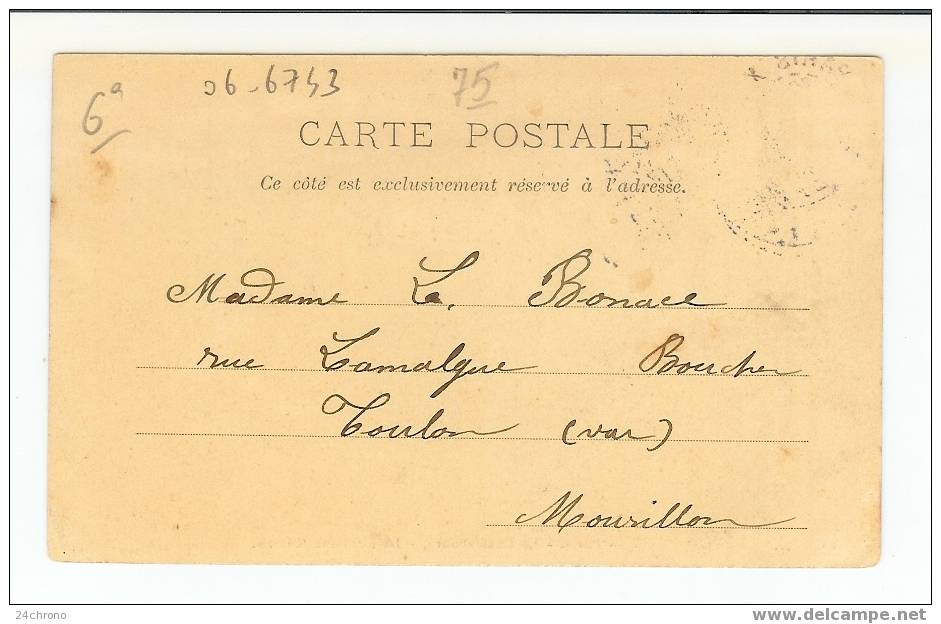 6a
06-6743
75
CARTE POSTALE
Ce côté est exclusivement réservé à l'adresse.
Madame Le Bonace
rue Lamalgue Boucher
Toulon (var)
Mourillon
24chrono
www.delcampe.net